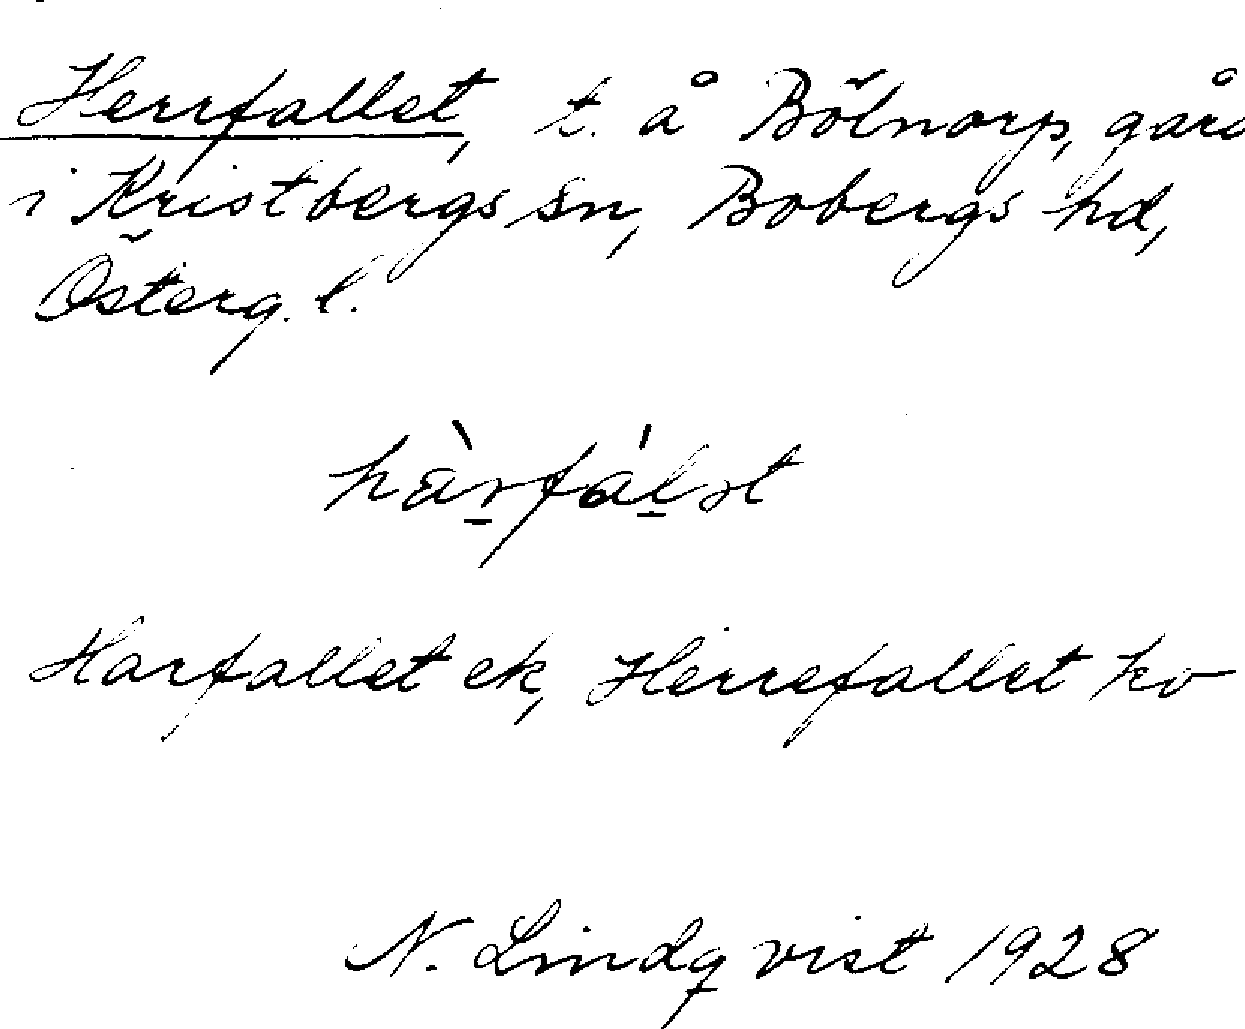 Herrfallet, t. å Bölnorp, går
i Kristbergs sn, Bobergs hd,
Österg. l.
hàrfálət
Harfallet ek, Herrefallet ko
N. Lindqvist 1928